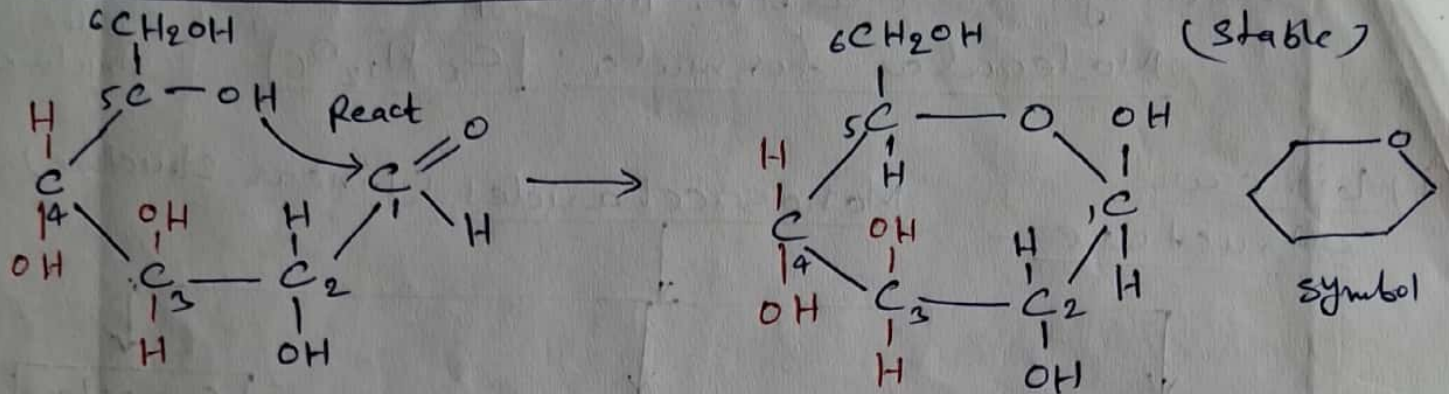 6CH2OH
5C - OH
React
H
C
4
OH
OH
C3
H
H
C2
OH
C
1
O
H
6CH2OH
(Stable)
5C
O
OH
H
H
C
4
OH
OH
C3
H
H
C2
OH
1C
H
O
symbol